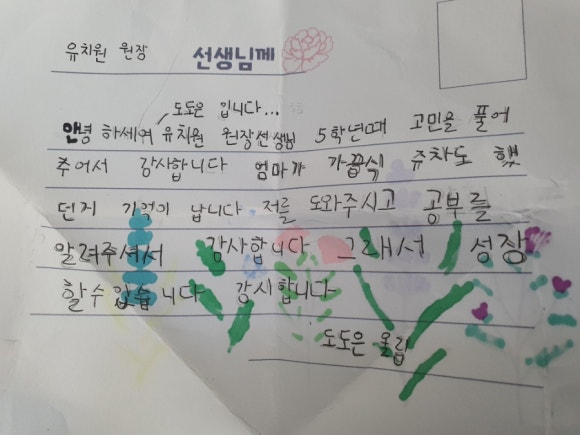 유치원 원장 선생님께
도도은 입니다...
안녕 하세여 유치원 원장선생님 5학년때 고민을 풀에
주어서 강사합니다 엄마가 가끔식 쥬차도 했
던지 기억이 납니다 저를 도와주시고 공부를
알려주셔서 감사합니다 그래서 성장
할수 있습니다 강시합니다
도도은 올림